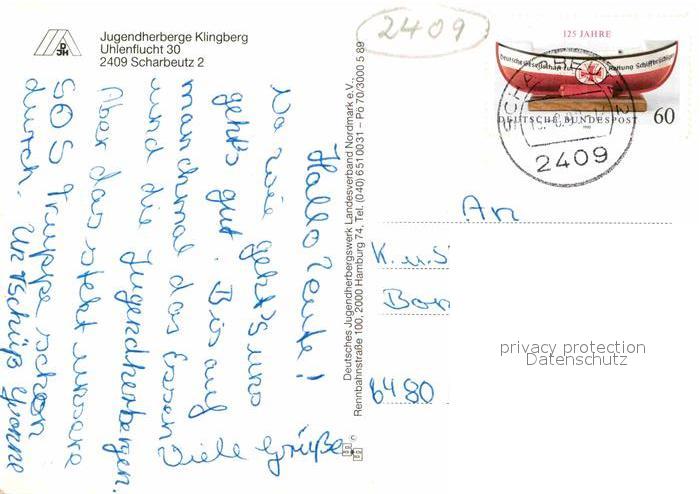 DJH
Jugendherberge Klingberg
Uhlenflucht 30
2409 Scharbeutz 2
2409
125 JAHRE
Deutsche Gesellschaft zur Rettung Schiffbrüchiger
DEUTSCHE BUNDESPOST 60
2409
Hallo Leute!
Na wie geht's uns
geht's gut. Bis auf
manchmal das Essen
und die Jugendherbergen.
Aber das steht unsere
SOS Truppe schon
durch.
Tschüß Yvonne
Viele Grüße
Deutsches Jugendherbergswerk Landesverband Nordmark e.V.,
Rennbahnstraße 100, 2000 Hamburg 74, Tel. (040) 6510031 – Pö 70/3000 5 89
An
K. u. S
Bor
6480
privacy protection
Datenschutz